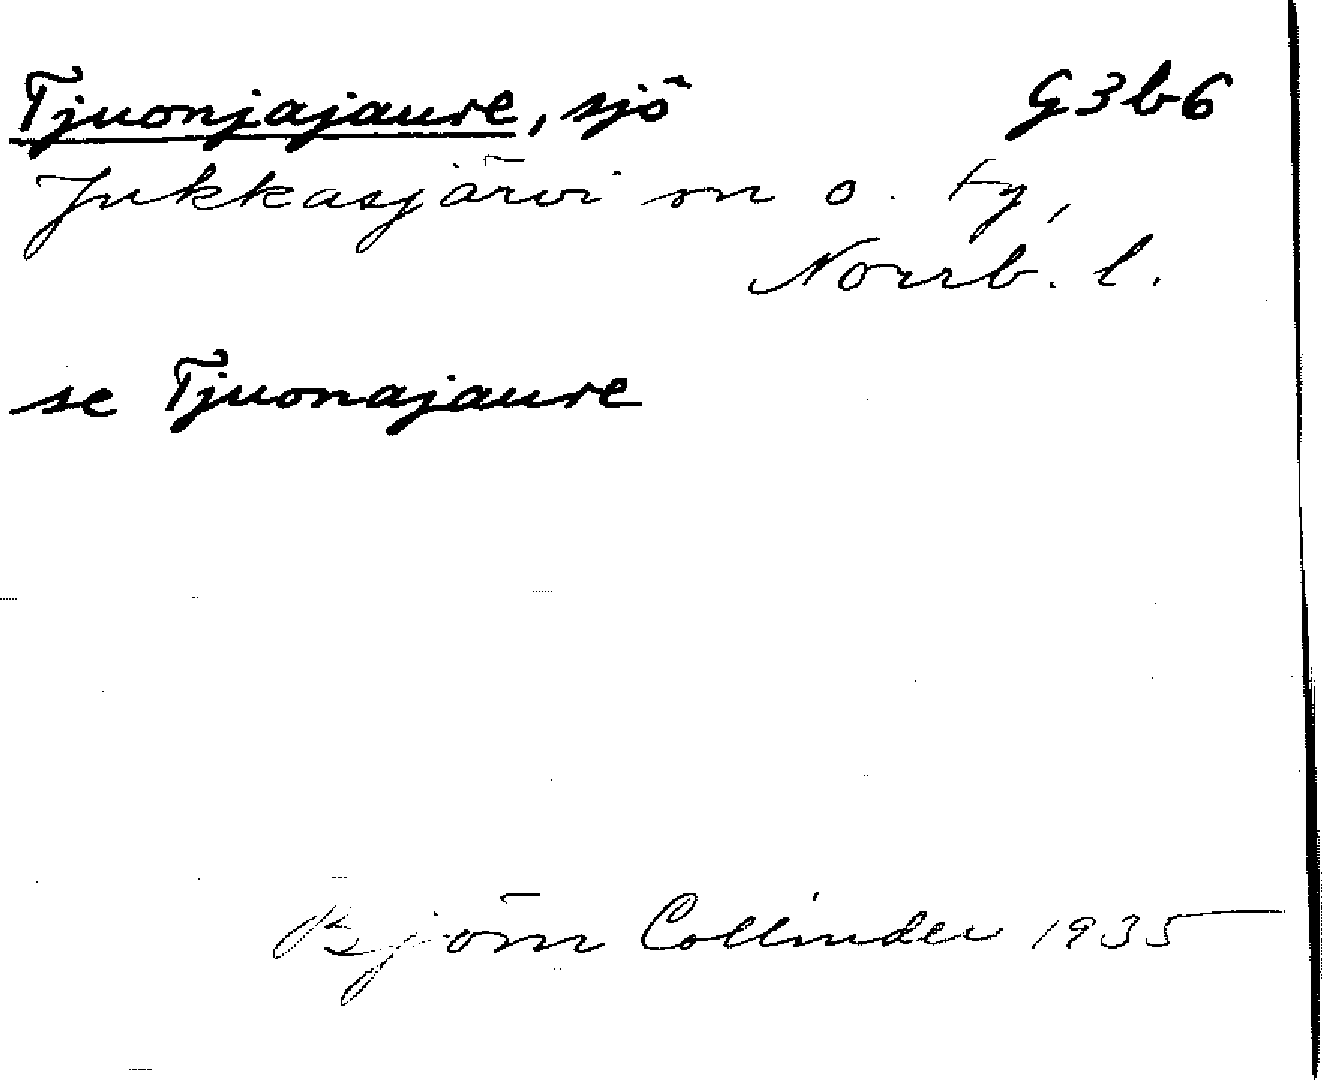 Tjuonjajaure, sjö G3b6
Jukkasjärvi sn o. ty,
Norrb. l.
se Tjuonajaure
Björn Collinder 1935